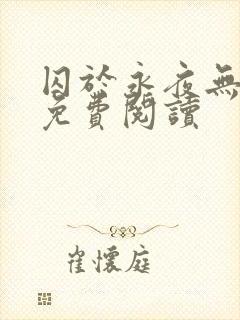 囚於永夜無
免費閱讀
崔懷庭